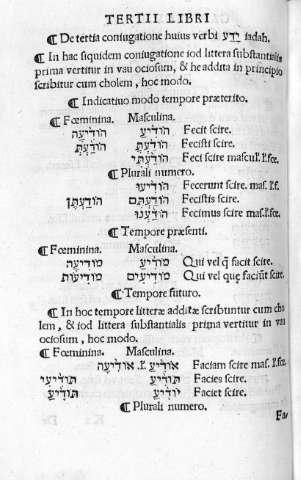 TERTII LIBRI
¶ De tertia coniugatione huius verbi יָדַע iadah.
¶ In hac siquidem coniugatione iod littera substantialis
prima vertitur in vau ociosum, & he addita in principio
scribitur cum cholem, hoc modo.
¶ Indicatiuo modo tempore præterito.
¶ Fœminina. Masculina.
הוֹדִיעָה הוֹדִיעַ Fecit scire.
הוֹדַעְתְּ הוֹדַעְתָּ Fecisti scire.
הוֹדַעְתִּי Feci scire mascu.ł.fœ.
¶ Plurali numero.
הוֹדִיעוּ Fecerunt scire mas.ł.f.
הוֹדַעְתֶּן הוֹדַעְתֶּם Fecistis scire.
הוֹדַעְנוּ Fecimus scire mas.ł.fœ.
¶ Tempore præsenti.
¶ Fœminina. Masculina.
מוֹדִיעָה מוֹדִיעַ Qui vel q̃ facit scire.
מוֹדִיעוֹת מוֹדִיעִים Qui vel quę faciũt scire.
¶ Tempore futuro.
¶ In hoc tempore litteræ additæ scribuntur cum cho
lem, & iod littera substantialis prima vertitur in vau
ociosum, hoc modo.
¶ Fœminina. Masculina.
אוֹדִיעַ ł. אוֹדִיעָה Faciam scire mas.ł.fœ.
תּוֹדִיעִי תּוֹדִיעַ Facies scire.
תּוֹדִיעַ יוֹדִיעַ Faciet scire.
¶ Plurali numero.